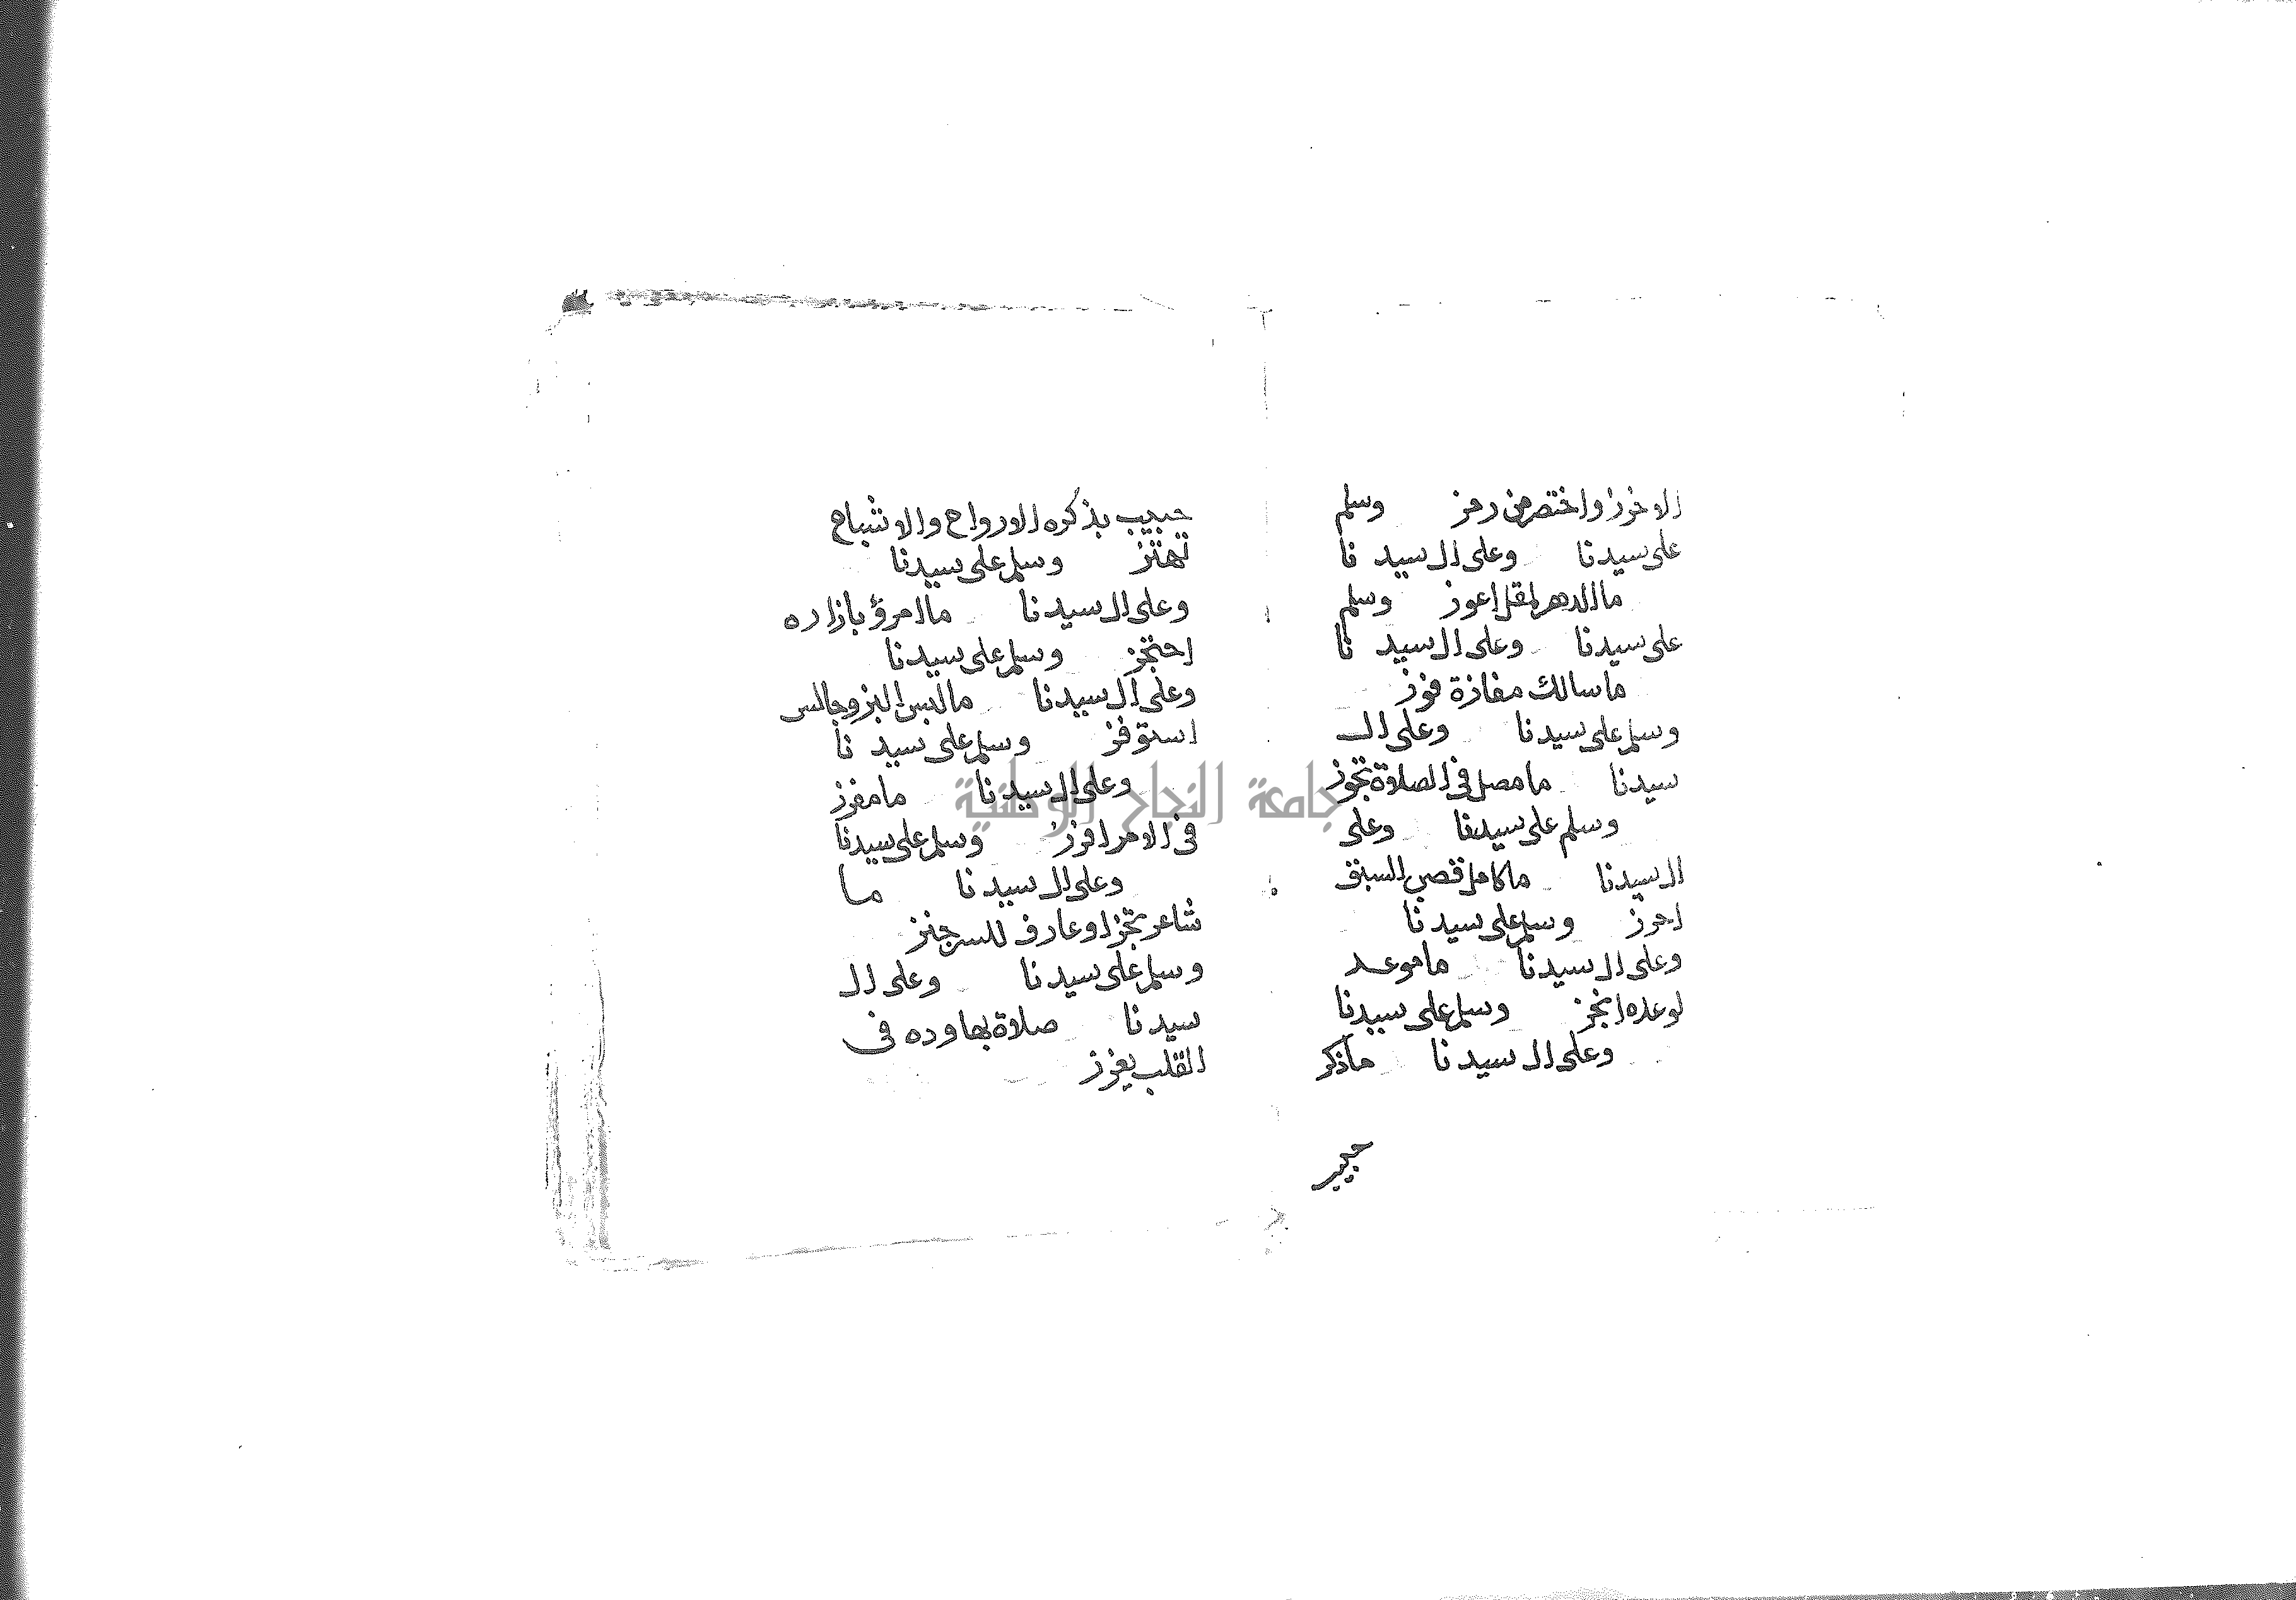 الاخوز واختصر من رمز وسلم
على سيدنا وعلى ال سيد نا
ما الدهر لمقل اعوز وسلم
على سيدنا وعلى ال سيد نا
ما سالك مفازة فوز
وسلم على سيدنا وعلى ال
سيدنا ما مصل في الصلاة تجوز
وسلم على سيدنا وعلى
ال سيدنا ما كامل قصب السبق
احرز وسلم على سيدنا
وعلى ال سيدنا ما موعد
لوعده انجز وسلم على سيدنا
وعلى ال سيدنا ما ذكر
حبيب
حبيب بذكره الارواح والاشباح
تهتز وسلم على سيدنا
وعلى ال سيدنا ما امرؤ بازاره
احتجز وسلم على سيدنا
وعلى ال سيدنا ما لبس البز وجالس
استوفز وسلم على سيد نا
وعلى ال سيدنا ما مفرز
في الامر افرز وسلم على سيدنا
وعلى ال سيد نا ما
شاعر رجز او عارف للسر
وسلم على سيد نا وعلى ال
سيد نا صلاة بها وده في
القلب يغرز
جامعة النجاح الوطنية